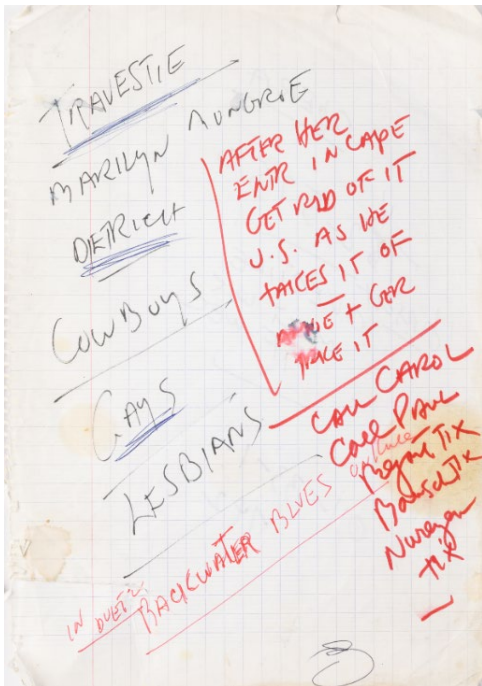 TRAVESTIE
MARILYN MUNGRIE
DIETRICH
COWBOYS
GAYS
LESBIANS
AFTER HER
ENTR IN CAPE
GET RID OF IT
U.S. AS HE
TAKES IT OF
+ GER
TAKE IT
CALL CAROL
CALL PAUL
Bejart TIX
Bausch TIX
Nureyev
TIX
IN DUET 2
BACKWATER BLUES